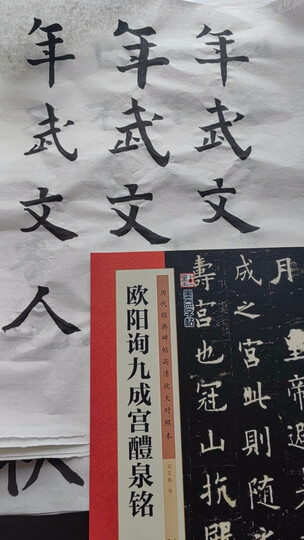 年武文
年武文
年武文人
墨点字帖
历代经典碑帖高清放大对照本
欧阳询九成宫醴泉铭
帝避
成之宫此則随
壽宫也冠山抗